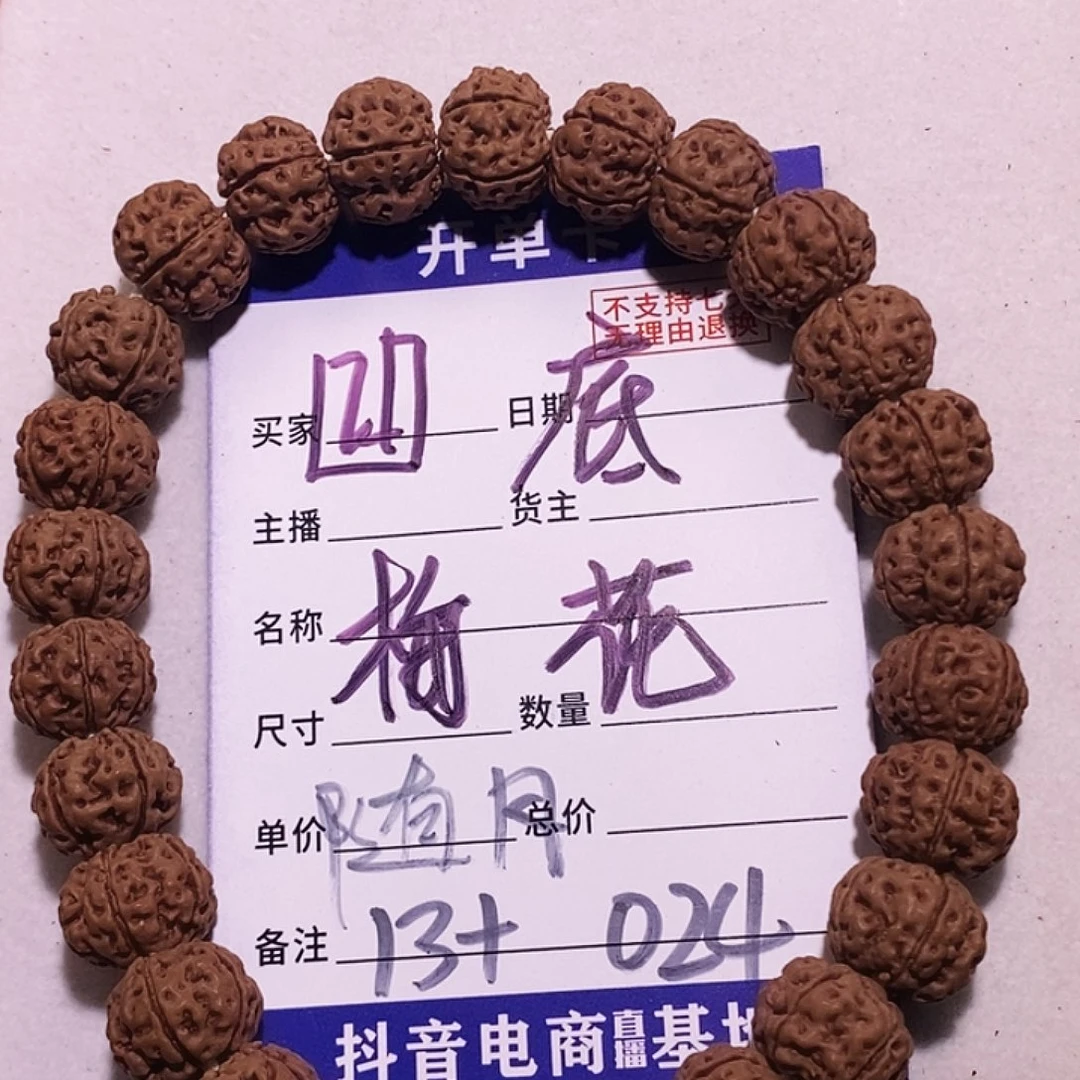 开单卡
不支持七天
无理由退换
买家 凹 日期 底
主播 货主
名称 梅花
尺寸 数量
单价 随 总价
备注 13+ 024
抖音电商直播基地